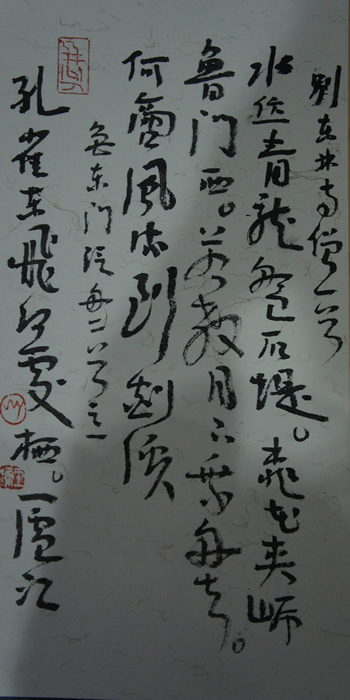 别东林寺僧一首
水作青龙盘石堤。桃花夹岸
鲁门西。若教月下乘舟去。
何啻风流到剡溪
鲁东门泛舟二首之一
孔雀东飞何处栖。一庐江